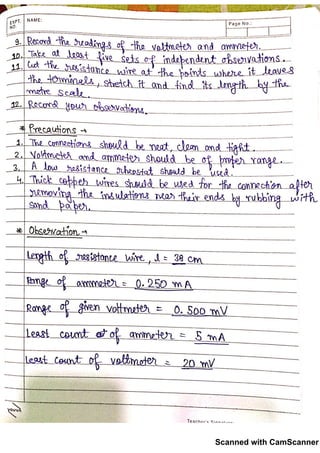 EXPT. NO. NAME: Page No.:
9. Record the readings of the voltmeter and ammeter.
10. Take at least five sets of independent observations.
11. Cut the resistance wire at the points where it leaves
the terminals, stretch it and find its length by the
metre scale.
12. Record your observations.
* Precautions →
1. The connections should be neat, clean and tight.
2. Voltmeter and ammeter should be of proper range.
3. A low resistance rheostat should be used.
4. Thick copper wires should be used for the connection after
removing the insulations near their ends by rubbing with
sand paper.
* Observation →
Length of resistance wire, l = 38 cm
Range of ammeter = 0.250 mA
Range of given voltmeter = 0.500 mV
Least count of ammeter = 5 mA
Least count of voltmeter = 20 mV
Teacher's Signature
Scanned with CamScanner